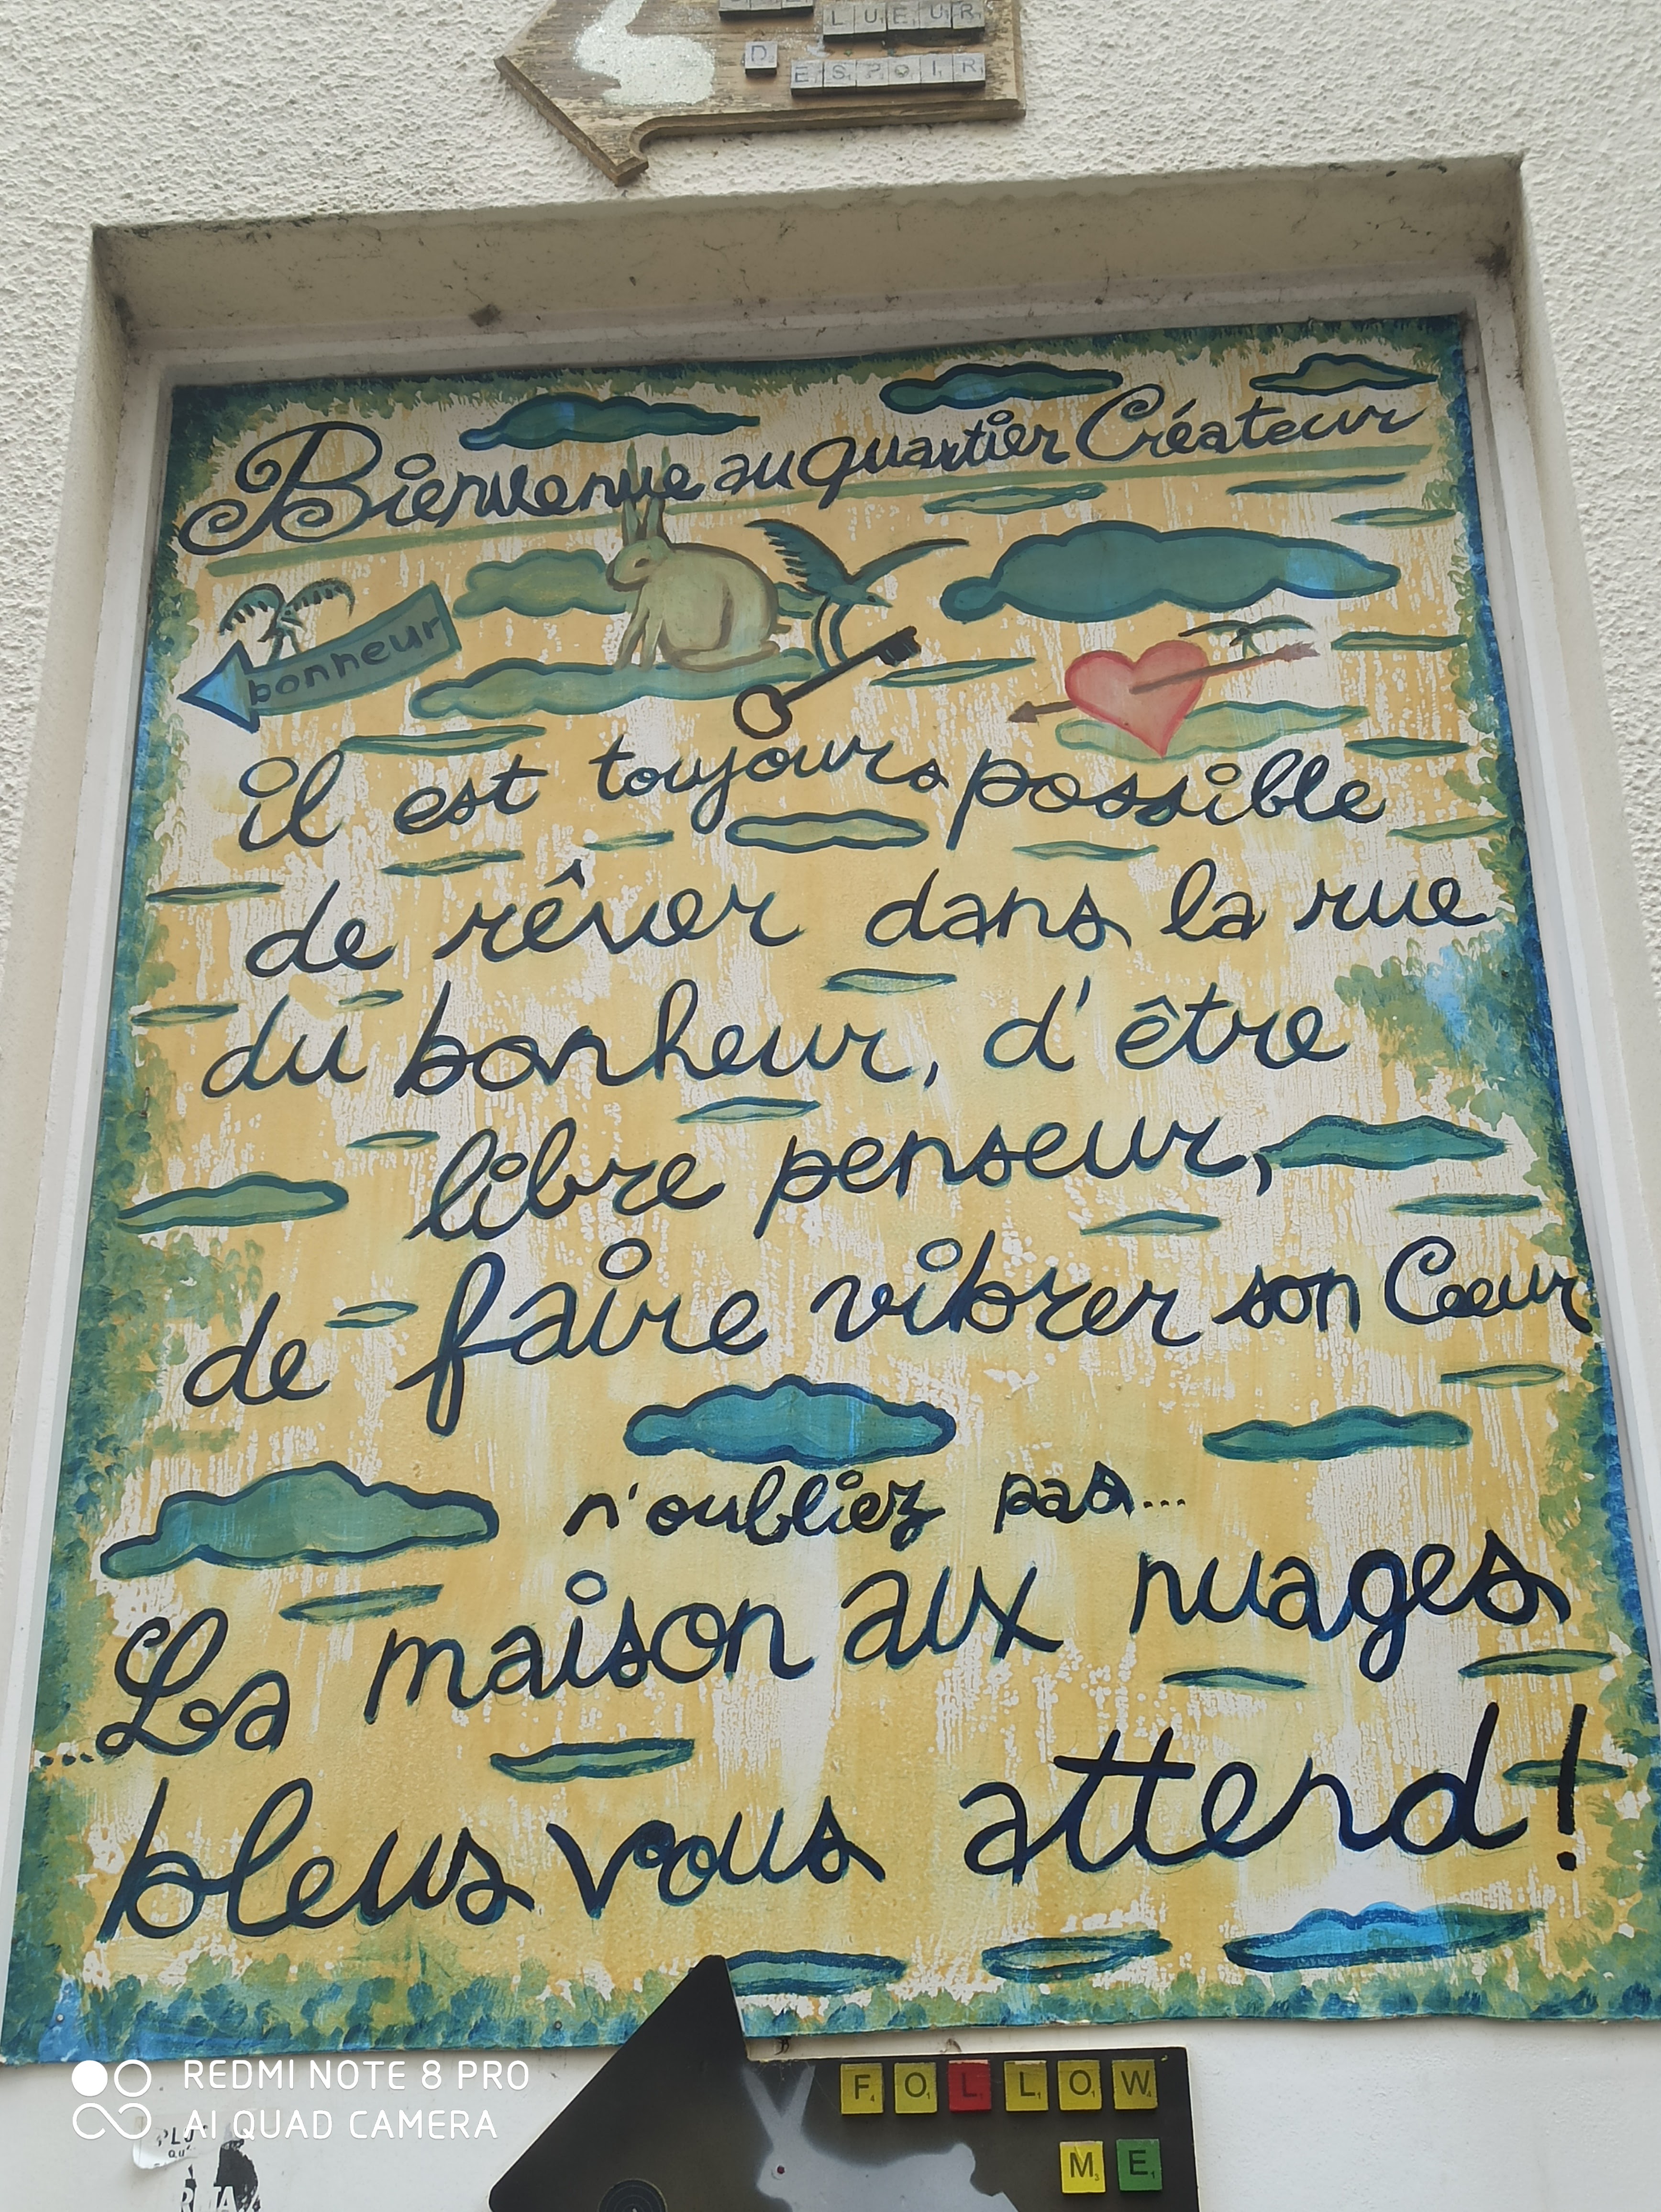 LUEUR
D ESPOIR
Bienvenue au quartier Créateur
bonheur
il est toujours possible
de rêver dans la rue
du bonheur, d'être
libre penseur,
de faire vibrer son Coeur
n'oubliez pas...
...La maison aux nuages
bleus vous attend!
FOLLOW
ME
REDMI NOTE 8 PRO
AI QUAD CAMERA